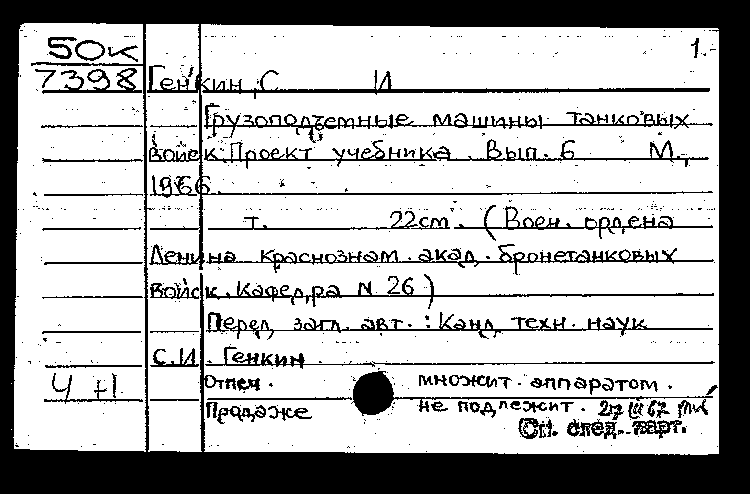 50к 1.-
7398 Генкин, С И
Грузоподъемные машины танковых
войск. Проект учебника. Вып. 6 М.,
1966.
т. 22см. (Воен. ордена
Ленина краснознам. акад. бронетанковых
войск. Кафедра N 26)
Перед загл. авт.: Канд. техн. наук
С.И. Генкин
4 +1 Отпеч. множит. аппаратом.
Продаже не подлежит. 27 III 67
См. след. карт.